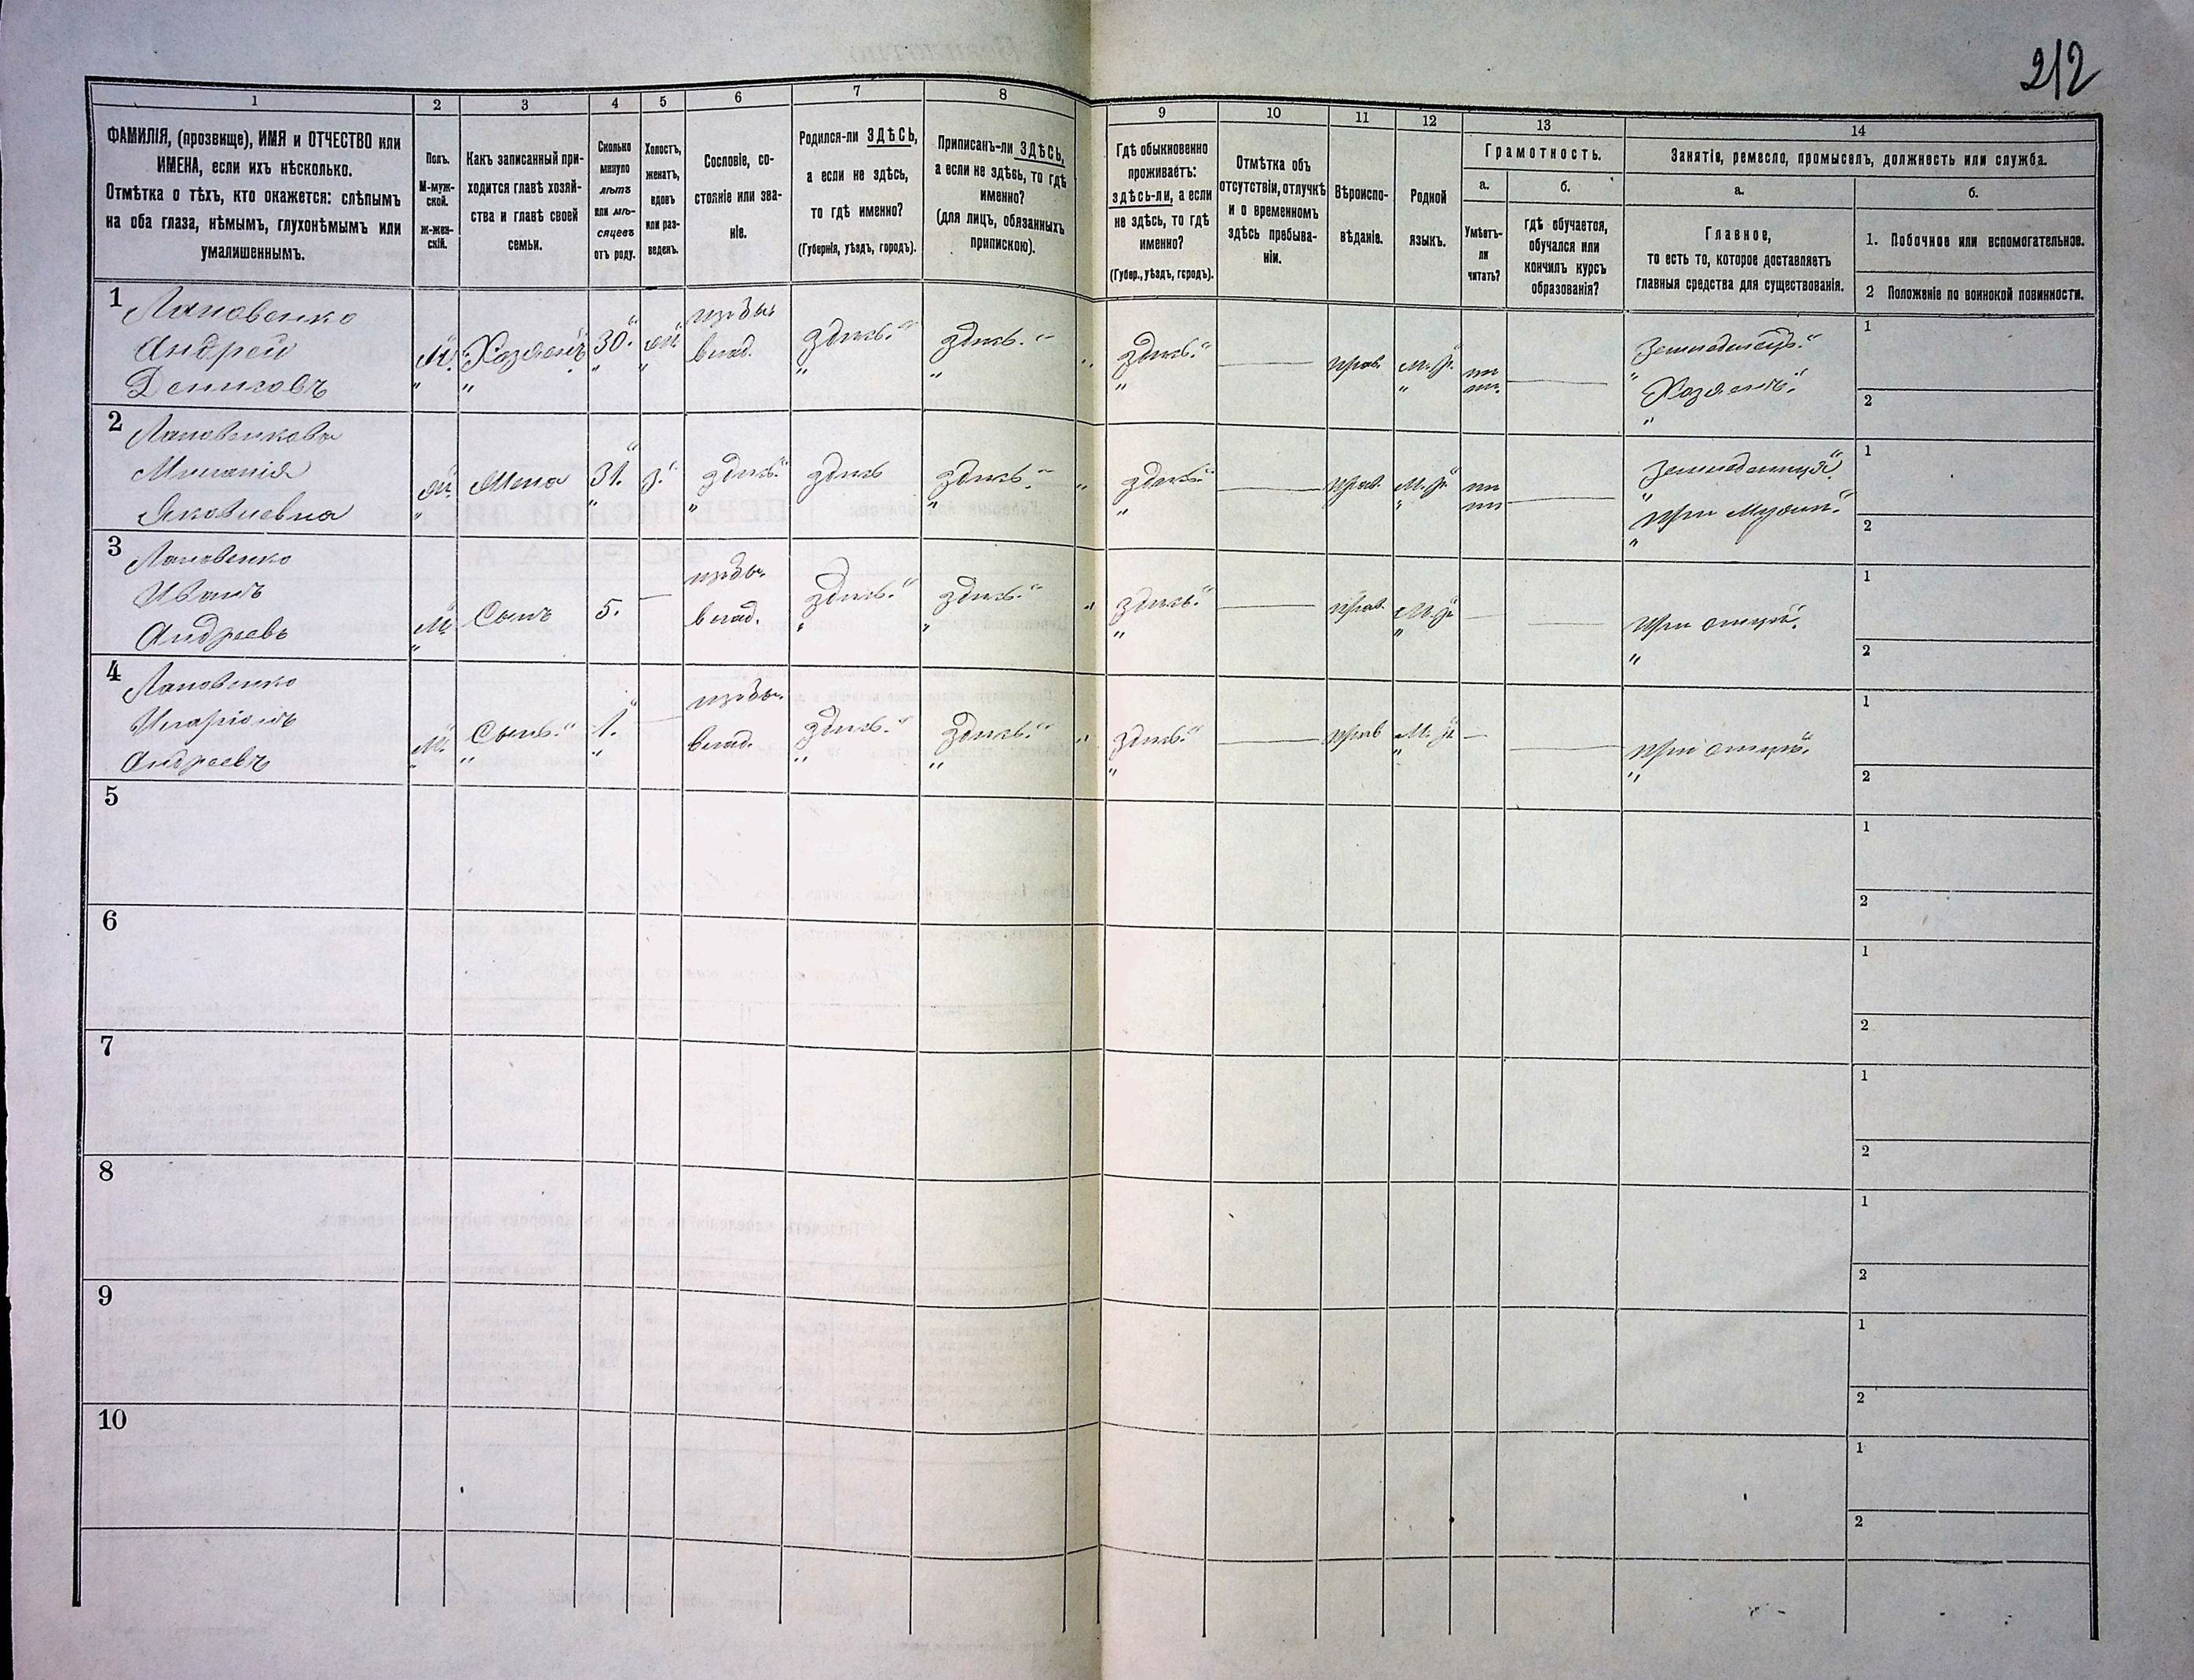 212
1
ФАМИЛІЯ, (прозвище), ИМЯ и ОТЧЕСТВО или
ИМЕНА, если ихъ нѣсколько.
Отмѣтка о тѣхъ, кто окажется: слѣпымъ
на оба глаза, нѣмымъ, глухонѣмымъ или
умалишеннымъ.
2
Полъ.
М-муж-
ской.
Ж-жен-
скій.
3
Какъ записанный при-
ходится главѣ хозяй-
ства и главѣ своей
семьи.
4
Сколько
минуло
лѣтъ
или мѣ-
сяцевъ
отъ роду.
5
Холостъ,
женатъ,
вдовъ
или раз-
веденъ.
6
Сословіе, со-
стояніе или зва-
ніе.
7
Родился-ли ЗДѢСЬ,
а если не здѣсь,
то гдѣ именно?
(Губернія, уѣздъ, городъ).
8
Приписанъ-ли ЗДѢСЬ,
а если не здѣсь, то гдѣ
именно?
(для лицъ, обязанныхъ
припискою).
9
Гдѣ обыкновенно
проживаетъ:
здѣсь-ли, а если
не здѣсь, то гдѣ
именно?
(Губер., уѣздъ, городъ).
10
Отмѣтка объ
отсутствіи, отлучкѣ
и о временномъ
здѣсь пребыва-
ніи.
11
Вѣроиспо-
вѣданіе.
12
Родной
языкъ.
13
Грамотность.
а.
Умѣетъ-
ли
читать?
б.
Гдѣ обучается,
обучался или
кончилъ курсъ
образованія?
14
Занятіе, ремесло, промыселъ, должность или служба.
а.
Главное,
то есть то, которое доставляетъ
главныя средства для существованія.
б.
1. Побочное или вспомогательное.
2 Положеніе по воинокой повинности.
1
Лановенко
Андрей
Денисовъ
М.
Хозяинъ
30.
влад.
здѣсь.
здѣсь.
здѣсь.
Прав.
Хозяинъ.
1
2
2
Лановенкова
Яковлевна
Жена
31.
здѣсь.
здѣсь
здѣсь.
здѣсь.
Прав.
При Мужѣ.
1
2
3
Лановенко
Иванъ
Андреевъ
М.
Сынъ
5.
влад.
здѣсь.
здѣсь.
здѣсь.
Прав.
При отцѣ.
1
2
4
Лановенко
Иларіонъ
Андреевъ
М.
Сынъ.
1.
влад.
здѣсь.
здѣсь.
здѣсь.
Прав
При отцѣ.
1
2
5
1
2
6
1
2
7
1
2
8
1
2
9
1
2
10
1
2